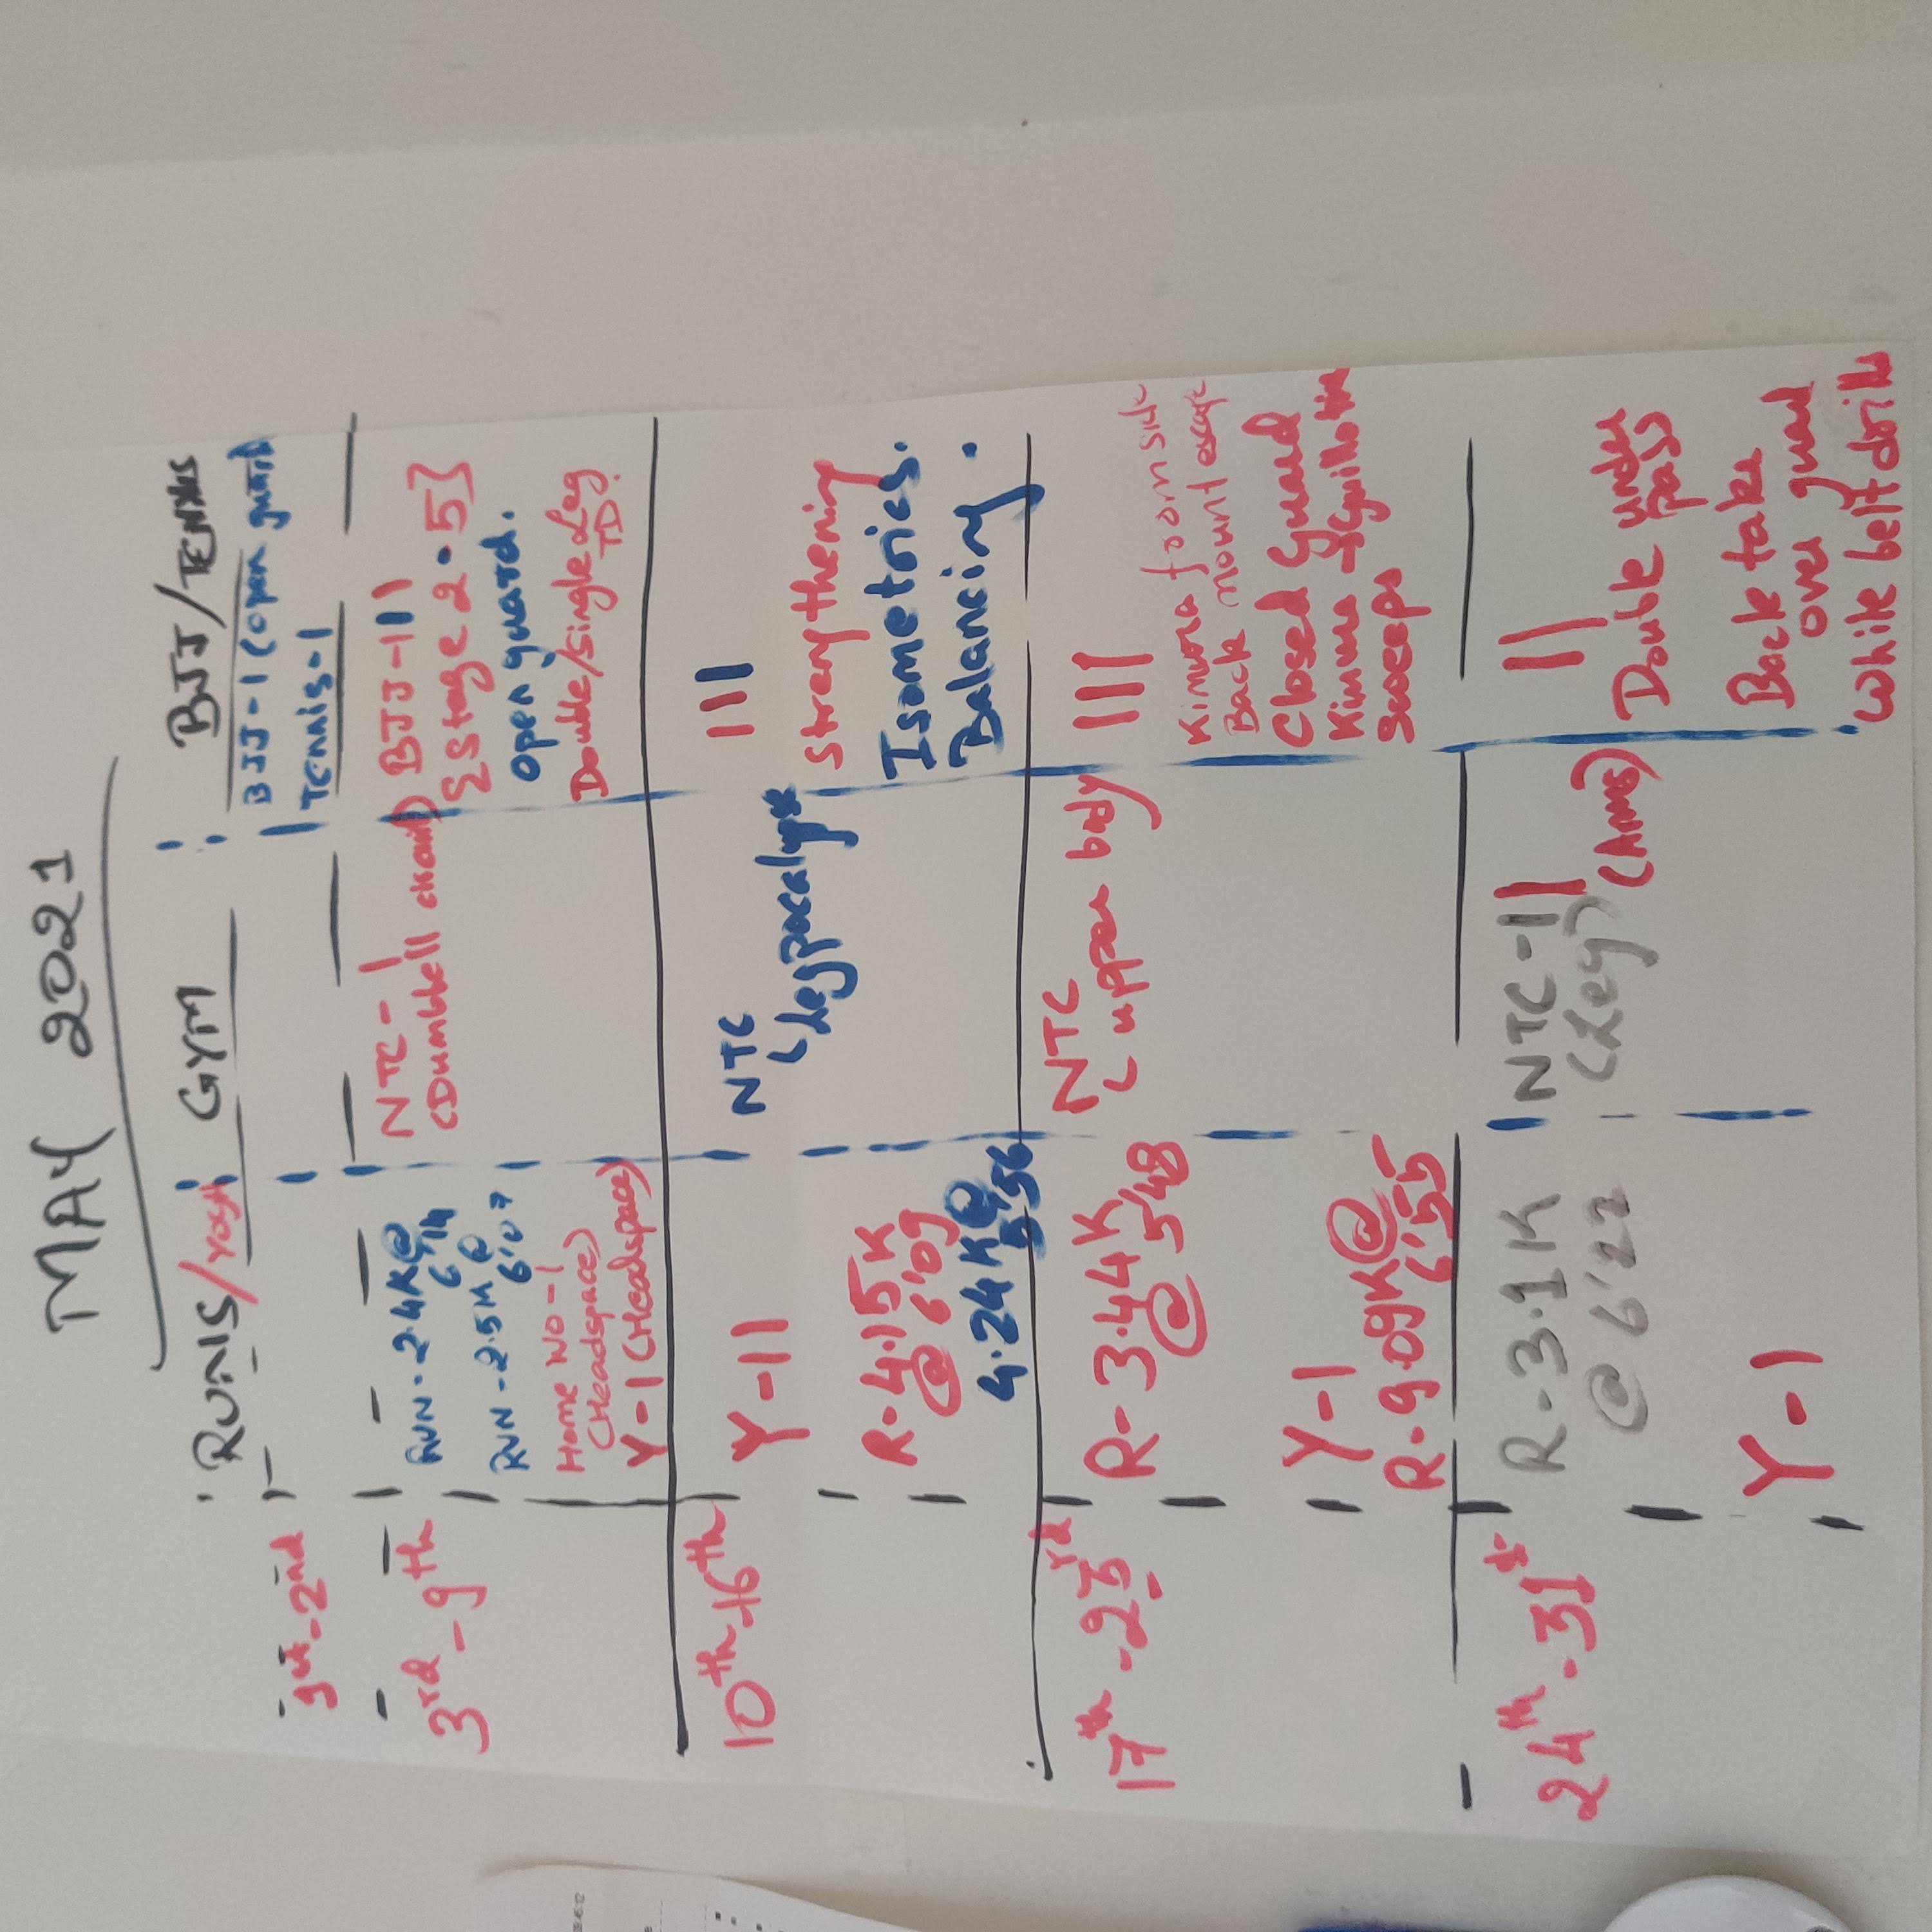 MAY 2021
RUNS/YOGA GYM BJJ/TENNIS
1st-2nd
BJJ-1 (open guard
Tennis-1
3rd-9th
RUN-2.4K@
6'14
RUN-2.5K@
6'07
Home WO-1
(Headspace)
Y-1 (Headspace)
NTC-1
(Dumbbell circuit)
BJJ-111
{Stage 2.5}
open guard.
Double/Single Leg
TD.
10th-16th
Y-11
R-4.15K
@ 6'09
4.24K@
5'56
NTC
(Legpocalypse
III
Strengthening
Isometrics.
Balancing.
17th-23rd
R-3.44K
@ 5'48
Y-1
R-9.09K@
6'55
NTC
(upper body
III
Kimura from side
Back mount escape
Closed Guard
Kimura → Guillotine
Sweeps
24th-31st
R-3.1K
@ 6'22
Y-1
NTC-11
(Leg)
(Arms)
II
Double under
pass
Back take
over guard
White belt drills